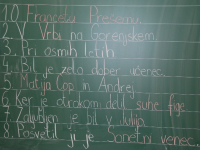 10. Francetu Prešernu.
2. V Vrbi na Gorenjskem.
3. Pri osmih letih.
4. Bil je zelo dober učenec.
5. Matija Čop in Andrej
6. Ker je otrokom delil suhe fige.
7. Zaljubljen je bil v Julijo.
8. Posvetil ji je Sonetni venec.